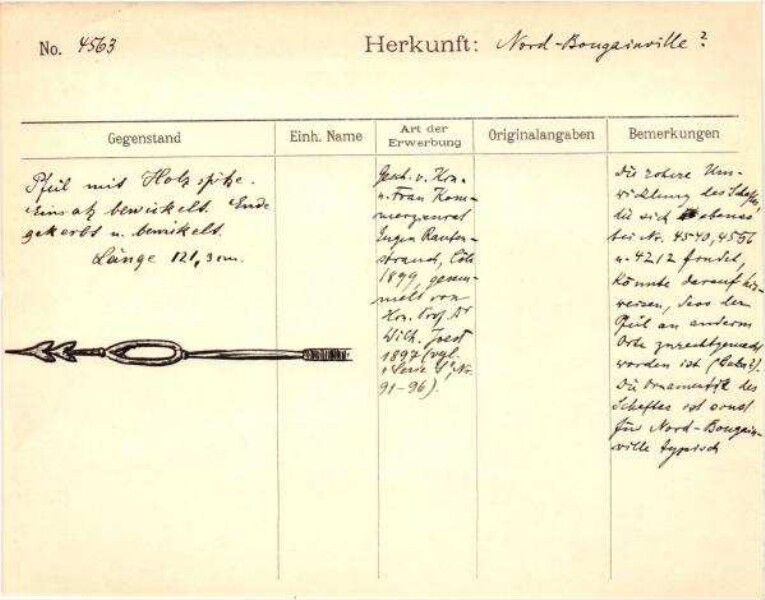 No. 4563
Herkunft: Nord-Bougainville?
Gegenstand
Einh. Name
Art der
Erwerbung
Originalangaben
Bemerkungen
Pfeil mit Holzspitze.
Einsatz bewickelt. Ende
gekerbt u. bewickelt.
Länge 121,3 cm.
Gesch. v. Hrn.
u. Frau Kom-
merzienrat
Eugen Rauten-
strauch, Cöln
1899, gesam-
melt von
Hrn. Prof. Dr
Wilh. Joest
1897 (vgl.
"Serie S", Nr.
91-96).
Die rohere Um-
wicklung des Schaftes,
die sich ebenso
bei Nr. 4540, 4556
u. 4212 findet,
könnte darauf hin-
weisen, dass der
Pfeil an anderm
Orte zurechtgemacht
worden ist (Buka?).
Die Ornamentik des
Schaftes ist sonst
für Nord-Bougain-
ville typisch